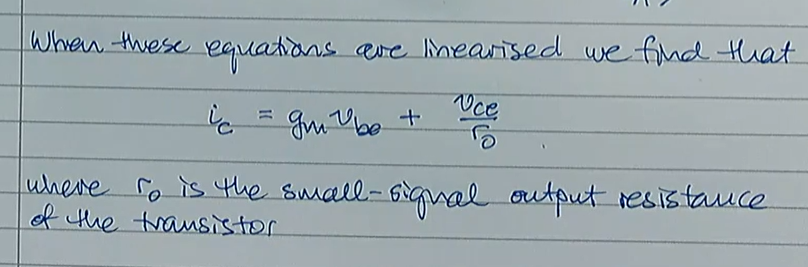 When these equations are linearised we find that
i_c = g_m v_be + v_ce / r_o
where r_o is the small-signal output resistance
of the transistor